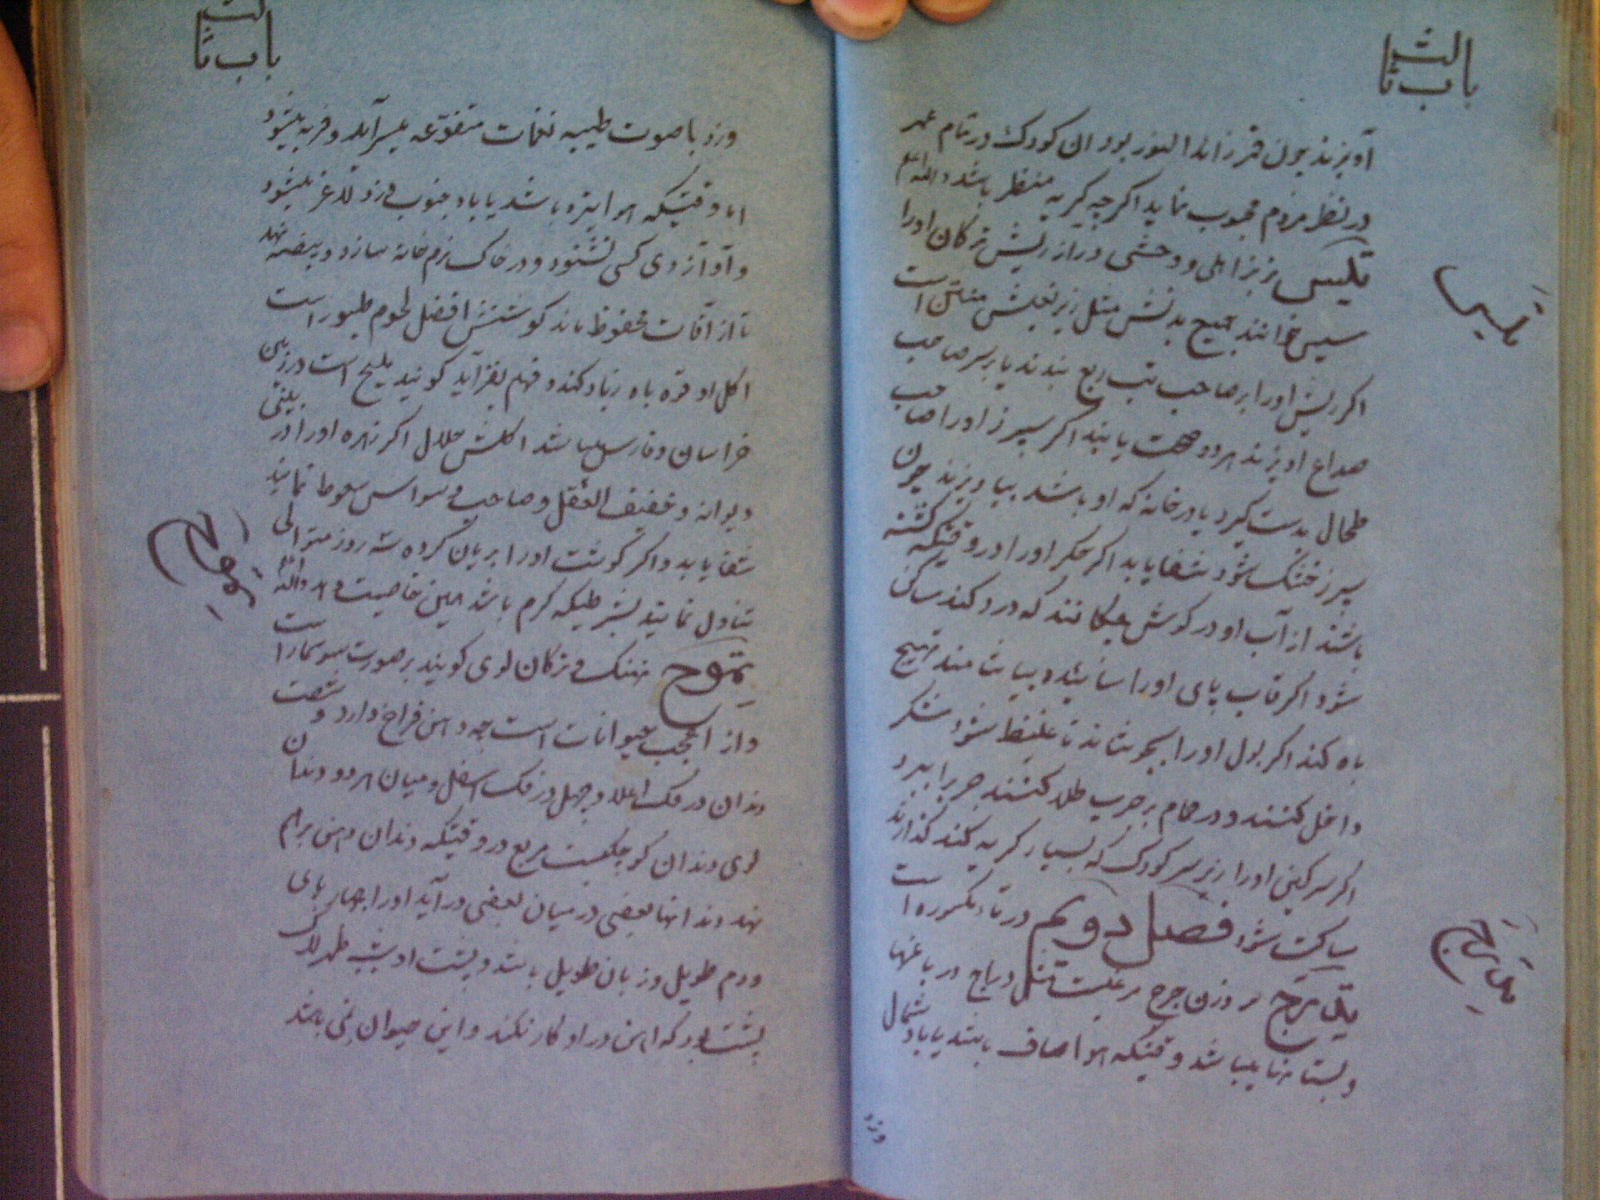 باب ثالث
آویزند بول قمر زاند النور بود ان کودک در تمام عمر
در نظر مردم محبوب نماید اکرچه کریه منظر باشد والله اعلم
تیس بز نر اهلی و وحشی دراز ریش ترکان اورا
سیس خوانند جمیع بدنش مثل زیر بغلش منتن است
اکر ریش اورا بر صاحب تب ربع بندند یا بر سر صاحب
صداع اویزند هر دو صحت یابند اکر سپرز اورا صاحب
طحال بدست کیرد یا در خانه که او باشد بیاویزند چون
سپرز خشک شود شفا یابد اکر جکر اورا در وقتیکه کشته
باشند از آب او در کوش چکانند که درد کند ساکن
شود اکر قاب پای اورا سائیده بیاشامند تهییج
باه کند اکر بول اورا بجوشاند تا غلیظ شود شکر
داخل کنند و در حمام بر جرب طلا کنند جرب را ببرد
اکر سرکین اورا زیر سر کودک که بسیار کریه کند کذارند
ساکت شود فصل دویم در تاء مکسوره است
بر وزن جرج مرغیست مثل دراج در باغها
و بستانها میباشد وقتیکه هوا صاف باشد یا باد شمال
وزد
تیس
باب ثالث
وزد با صوت طیبه نغمات متفوعه میسرآید و فربه میشود
اما وقتیکه هوا تیره باشد یا باد جنوب وزد لاغر میشود
و آواز وی کسی نشنود و در خاک نرم خانه سازد و بیضه نهد
تا از آفات محفوظ ماند کوشتش افضل لحوم طیور است
اکل او قوه باه زیاد کند و فهم بفزاید کویند ملیح است در زمین
خراسان و فارس میباشد اکلش حلال اکر زهره اورا در بینی
دیوانه و خفیف العقل و صاحب وسواس سعوط نمایند
شفا یابد و اکر کوشت اورا بریان کرده سه روز متوالی
تناول نمایند بشرطیکه کرم باشد همین خاصیت دهد والله
نهنک و ترکان لوی کویند بر صورت سوسمار است
و از اعجب حیوانات است چه دهن فراخ دارد و شصت
دندان در فک اعلا و چهل در فک اسفل و میان هر دو دندان
لوی دندان کوچکیست مربع در وقتیکه دندان دهن برهم
نهد دندانها بعضی در میان بعضی در آید اورا چهار پای
و دم طویل و زبان طویل باشد و پشت او شبیه ظهر لاک
پشت بود که اهن در او کار نکند و این حیوان نمی باشد